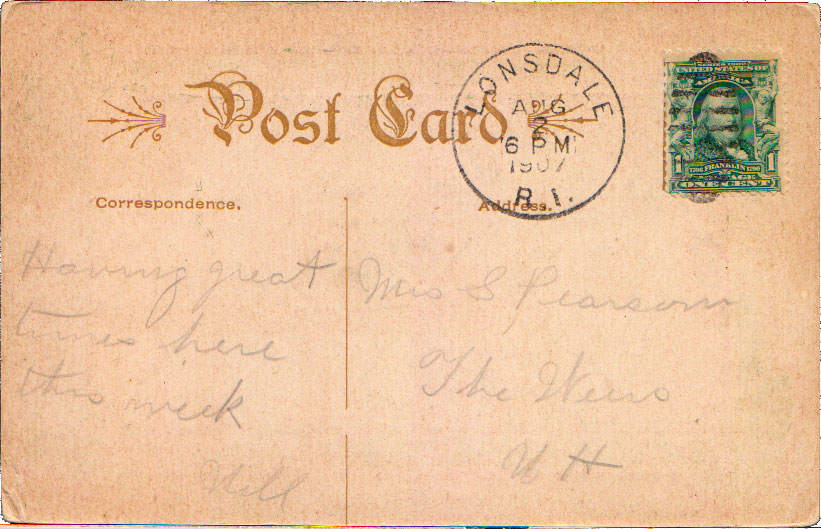 Post Card
LONSDALE
AUG
2
6 PM
1907
R.I.
UNITED STATES OF
AMERICA
1 1
FRANKLIN
ONE CENT
Correspondence.
Address.
Having great
times here
this week
Nell
Mrs S Pearson
The Weirs
N H